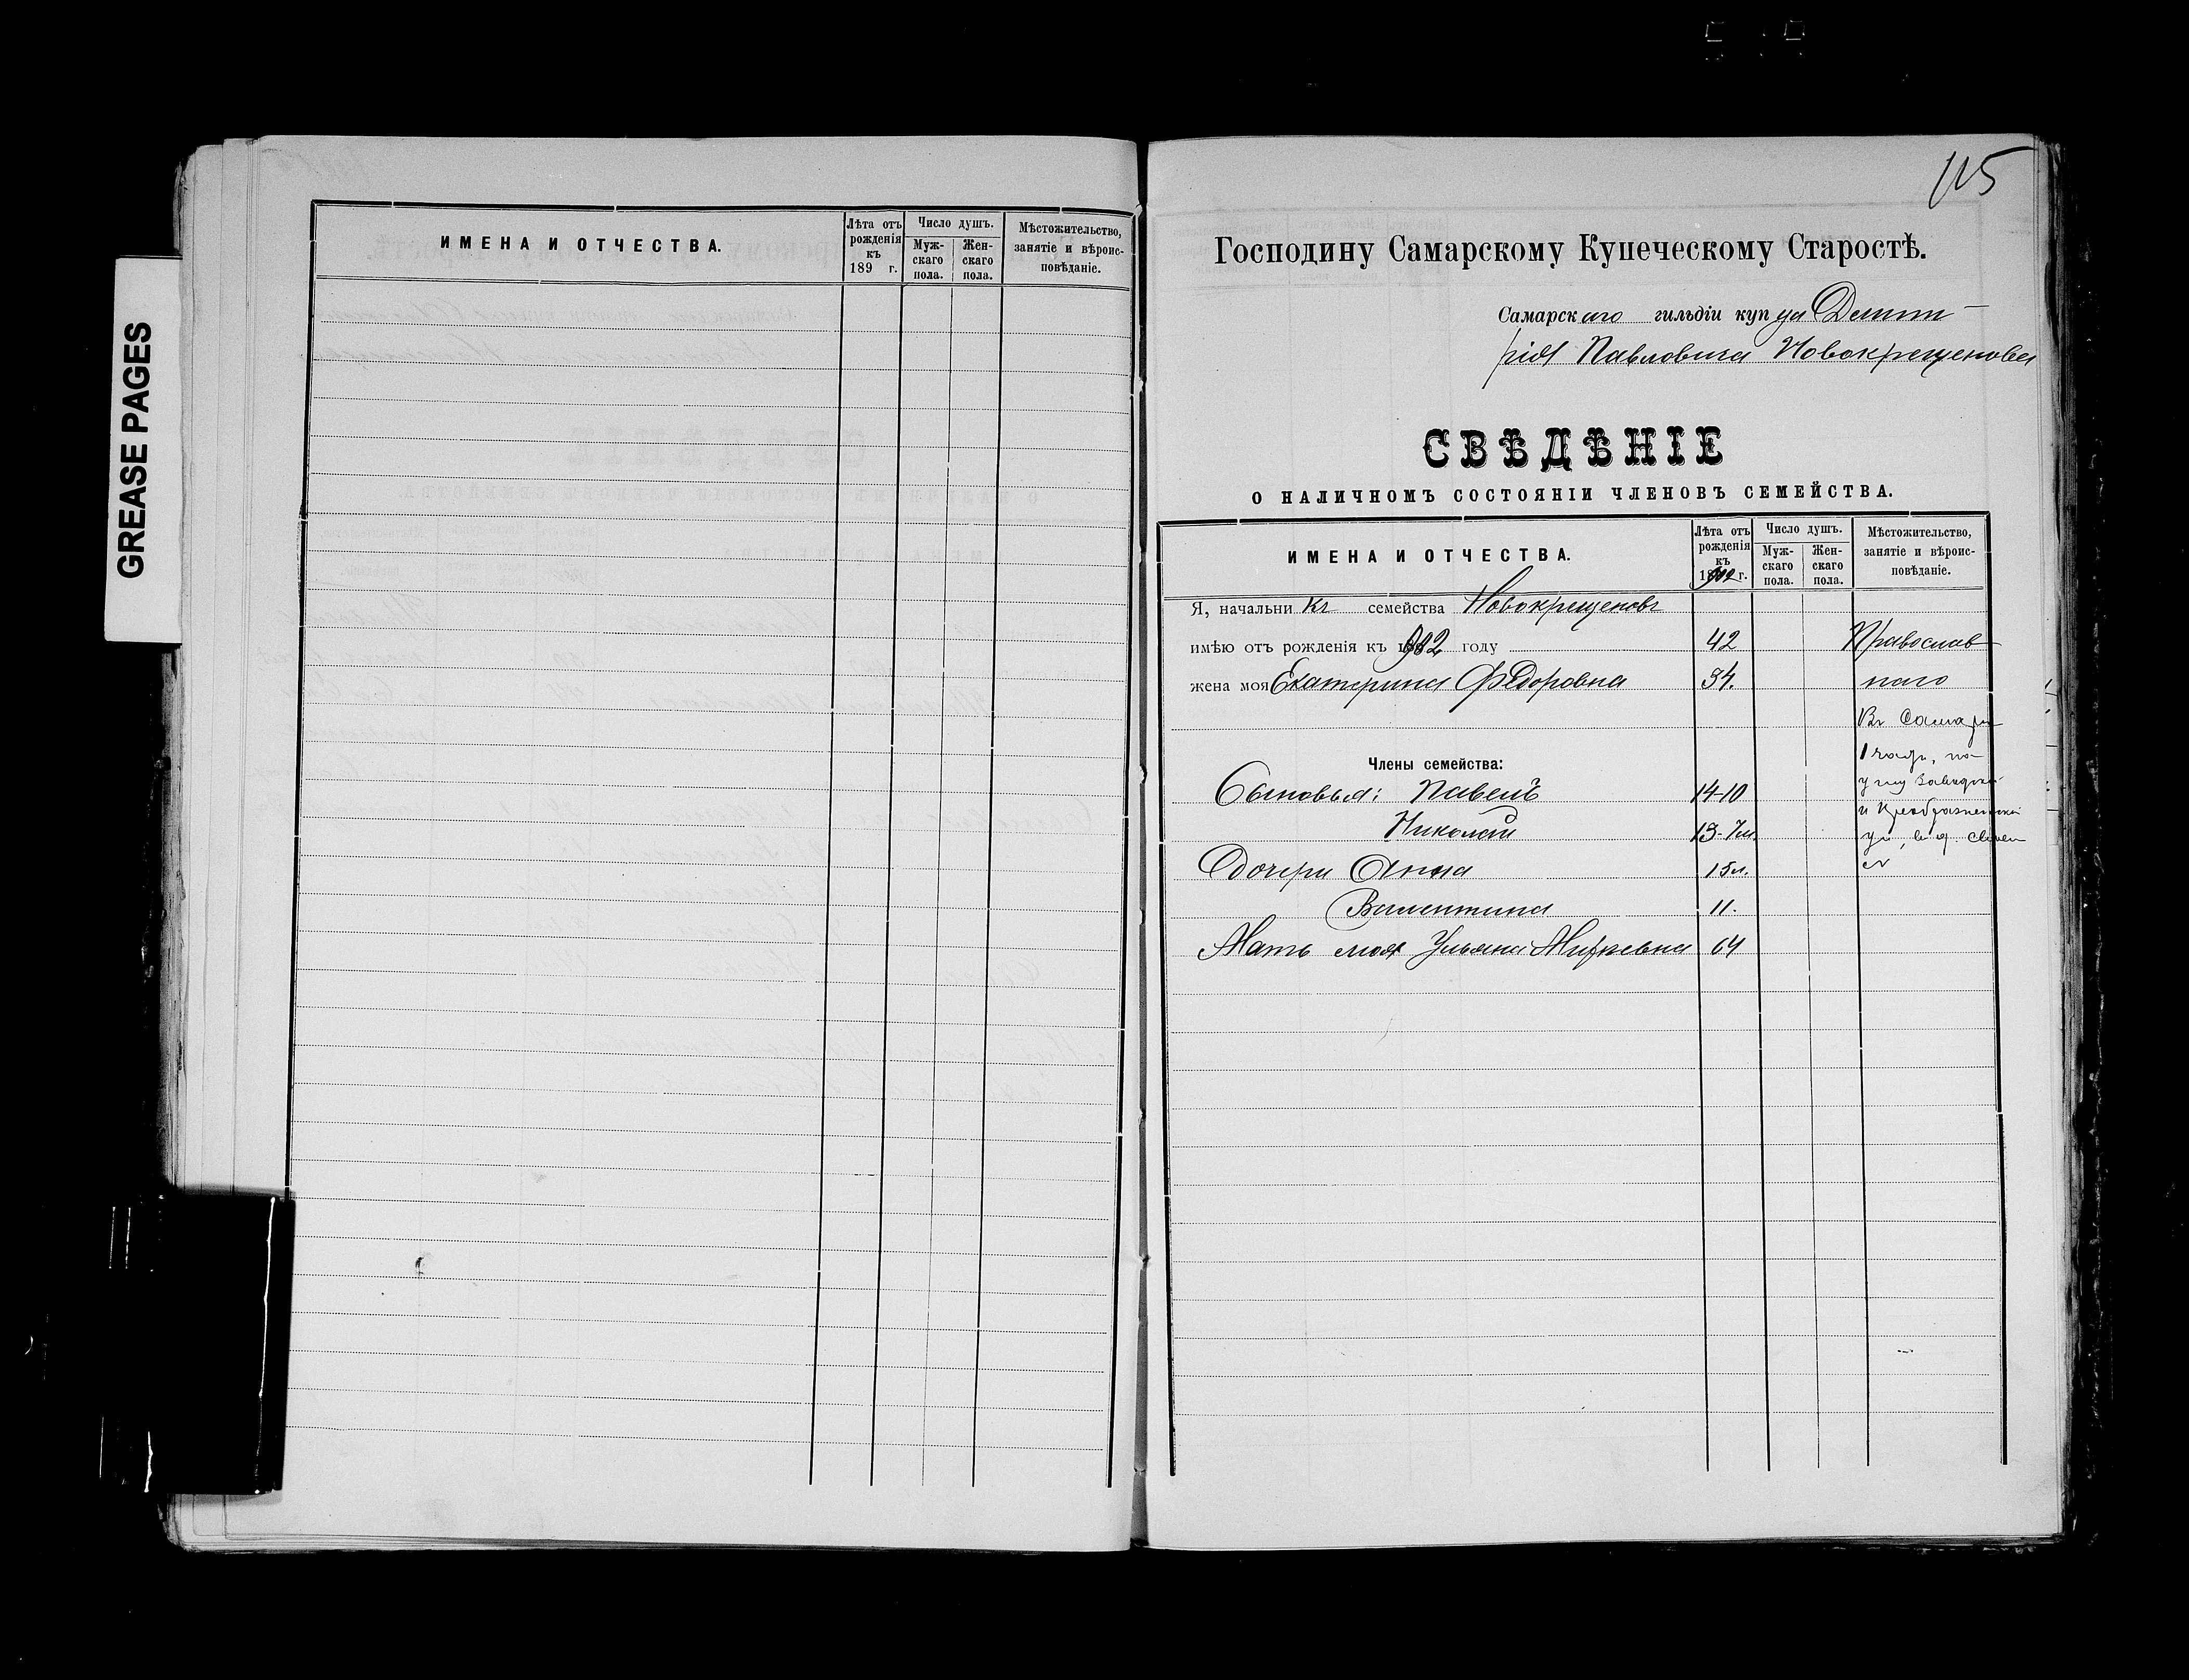 GREASE PAGES
ИМЕНА И ОТЧЕСТВА.
Лѣта отъ рожденія къ 189 г.
Число душъ.
Мужскаго пола.
Женскаго пола.
Мѣстожительство, занятіе и вѣроисповѣданіе.
115
Господину Самарскому Купеческому Старостѣ.
Самарскаго гильдіи купца Дмит-
рія Павловича Новокрещенова
СВѢДѢНІЕ
О НАЛИЧНОМЪ СОСТОЯНІИ ЧЛЕНОВЪ СЕМЕЙСТВА.
ИМЕНА И ОТЧЕСТВА.
Лѣта отъ рожденія къ 1902 г.
Число душъ.
Мужскаго пола.
Женскаго пола.
Мѣстожительство, занятіе и вѣроисповѣданіе.
Я, начальникъ семейства Новокрещеновъ
имѣю отъ рожденія къ 1902 году 42 Православ-
жена моя Екатерина Федоровна 34. наго
Въ Самарѣ
Члены семейства:
1 части, по
Сыновья: Павелъ 14-10
углу Заводской
и Преображенской
Николай 13-7м.
ул, в д.
Дочери Анна 15л.
Валентина 11.
Мать моя Ульяна 64